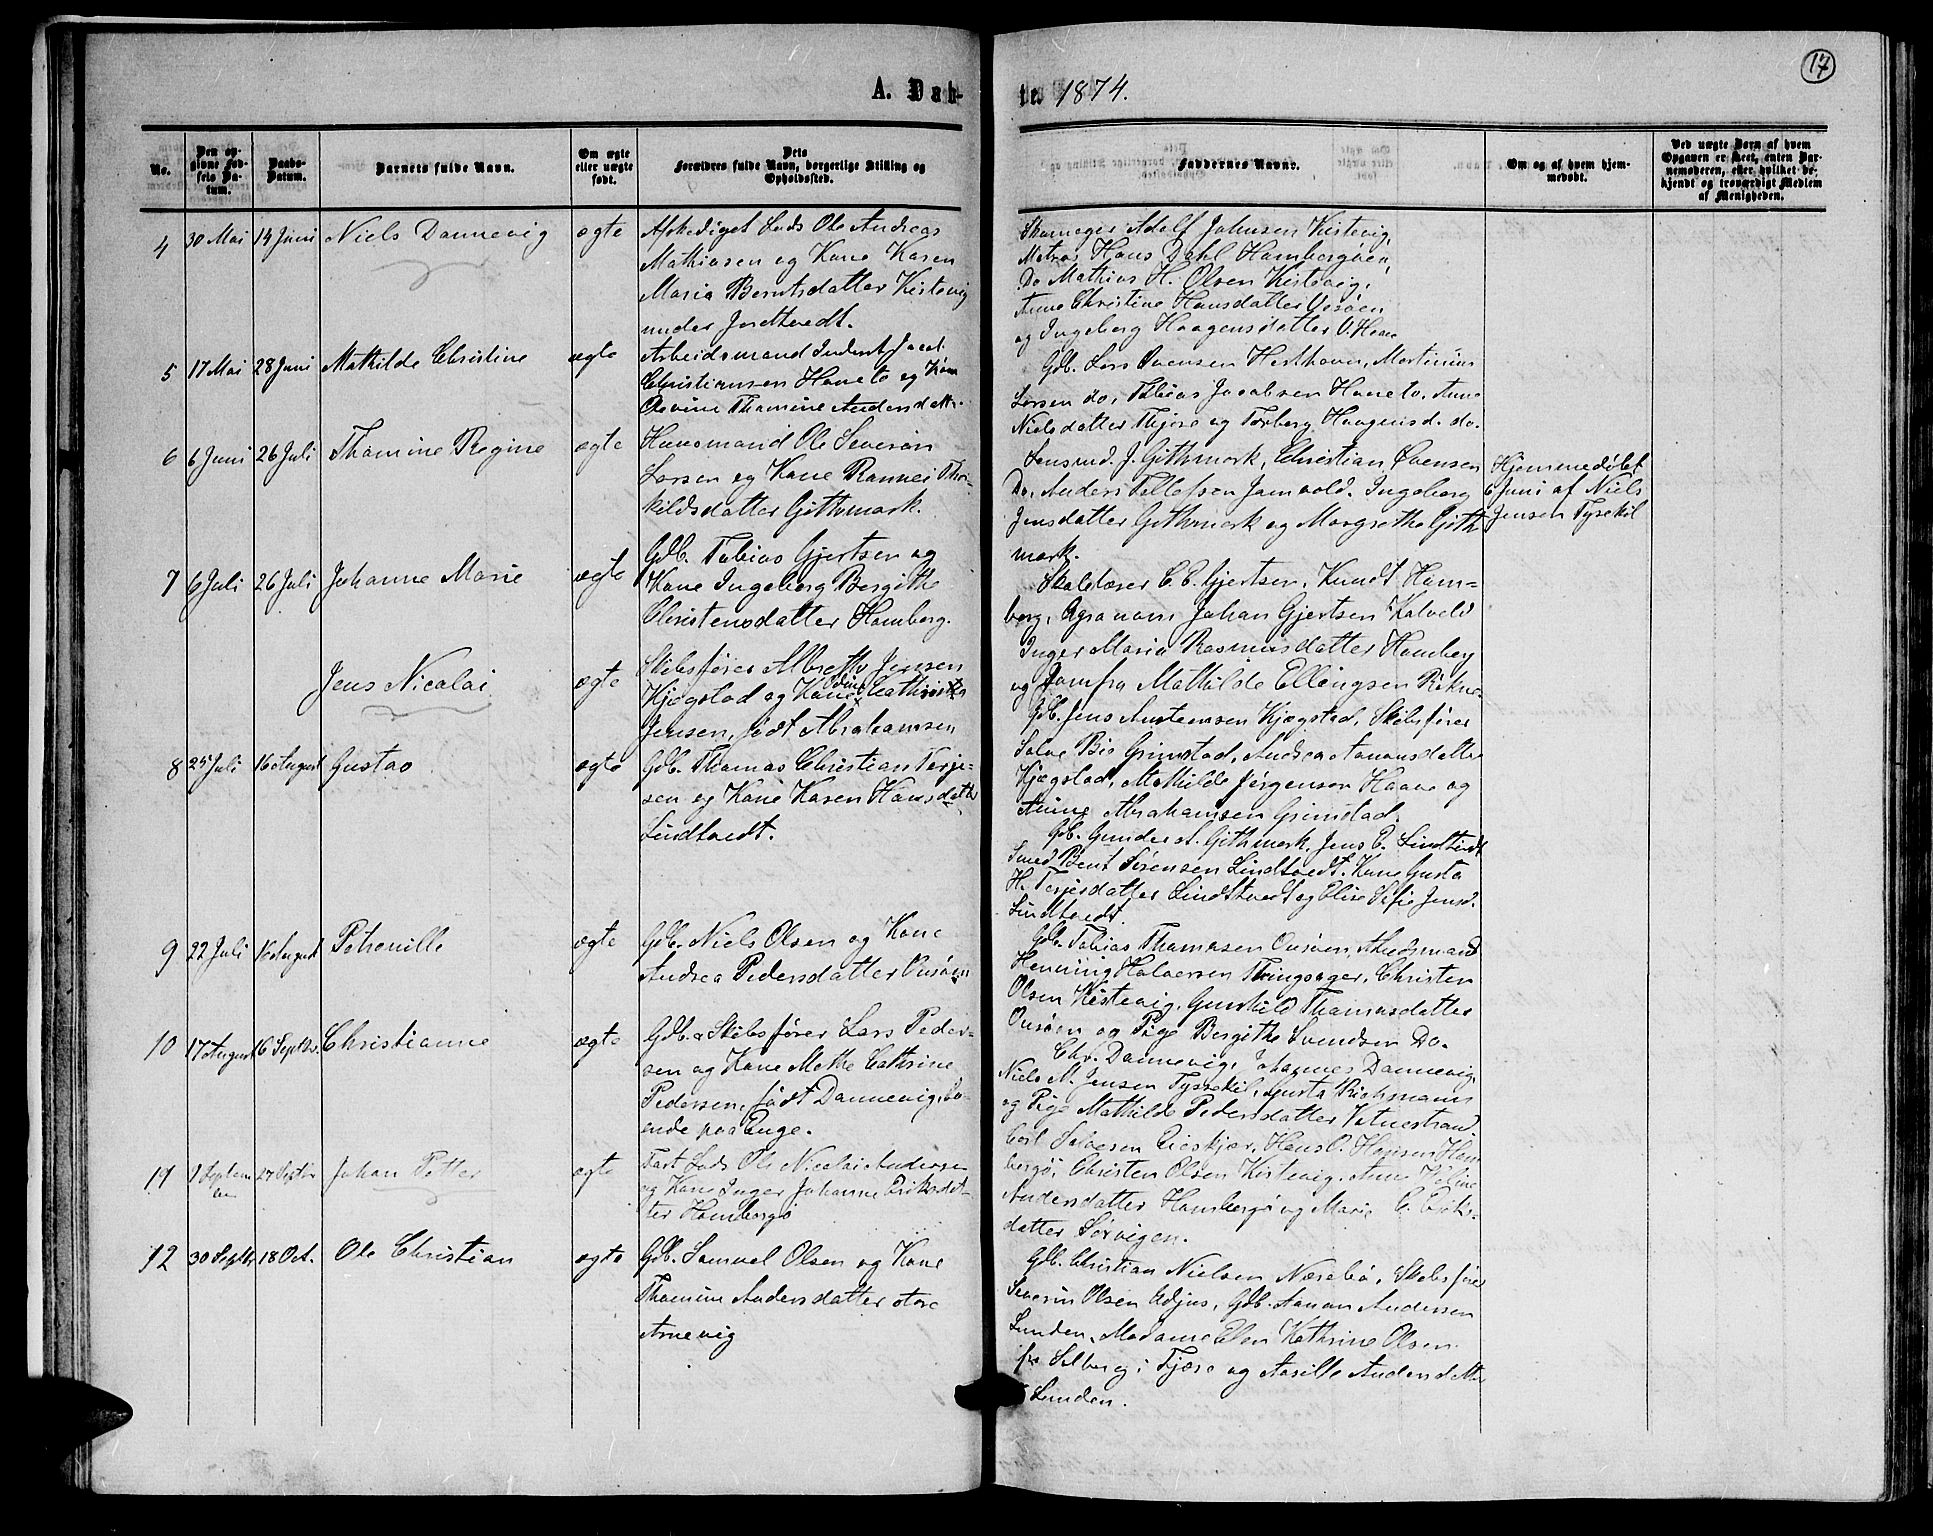 17
A. Daab-
te. 1874.
No.
Den op-
givne Fød-
sels Da-
tum.
Daabs-
Datum.
Barnets fulde Navn.
Om ægte
eller uægte
født.
Dets
Forældres fulde Navn, borgerlige Stilling og
Opholdssted.
Faddernes Navne.
Om og af hvem hjem-
medøbt.
Ved uægte Børn af hvem
Opgaven er skeet, enten Bar-
nemoderen, eller hvilket be-
kjendt og troværdigt Medlem
af Menigheden.
4 30 Mai 14 Juni Niels Dannevig ægte
Afskediget Lods Ole Andreas
Mathiasen og Kone Karen
Maria Berntsdatter Kistevig
under Jordtvedt.
Skomager Adolf Johnsen Kistevig,
Matros Hans Dahl Hambergøen,
Do Mathias H. Olsen Kistevig,
Anne Christine Hansdatter
og Ingeborg Haagensdatter
5 17 Mai 28 Juni Mathilde Christine ægte
Arbeidsmand
Christiansen Haneto og Kone
Thomine Andersdatter
Gdb. Lars Svensen Hesthaven, Martinius
Larsen do, Tobias Jacobsen Haneto, Anne
Nielsdatter og Torborg Haagensd. do.
6 6 Juni 26 Juli Thomine Regine ægte
Huusmand Ole Severin
Larsen og Kone Rannei Thor-
kildsdatter Githmark.
Githmark, Christian Svensen
Do, Anders Tellefsen Ingeborg
Jensdatter Githmark og Margrethe Gith-
mark.
Hjemmedøbt
6 Juni af Niels
Jensen Tyssekil
7 6 Juli 26 Juli Johanne Marie ægte
Gdb. Tobias Gjertsen og
Kone Ingeborg Bergithe
Christensdatter Homberg.
Skolelærer C. E. Gjertsen, Knudt Hom-
berg, Agronom Johan Gjertsen Kalvold
Inger Maria Rasmusdatter Homberg
og Jomfru Mathilde Ellingsen
Jens Nicolai ægte
Skibsfører Albreth Jensen
Kjægstad og Kone Cathrine
Jensen, født Abrahamsen
Gdb. Jens Austensen Kjægstad, Skibsfører
Salve Bie Grimstad, Andrea Aanonsdatter
Kjægstad, Mathilde Jørgensen Haave og
Anne Abrahamsen Grimstad.
8 25 Juli 16 August Gustav ægte
Gdb. Thomas Christian Terje-
sen og Kone Karen Hansdatter
Lindtvedt.
Gdb. Gunder A. Githmark, Jens C. Lindtvedt
Smed Bent Sørensen Lindtvedt, Kone Gusta
H. Terjesdatter Lindtvedt og Elise Sofie Jensd.
Lindtvedt.
9 22 Juli 16 August Petronille ægte
Gdb. Niels Olsen og Kone
Andrea Pedersdatter Ousøen
Gdb. Tobias Thomasen Ousøen,
Henning Halvorsen Thingsager, Christen
Olsen Kistevig, Gunhild Thomasdatter
Ousøen og Pige Bergithe Svendsen Do.
10 17 August 16 Septbr. Christianne ægte
Gdb. & Skibsfører Lars Peder-
sen og Kone Mathe Cathrine
Pedersen, født Dannevig, bo-
ende paa Enge.
Chr. Dannevig, Johannes Dannevig,
Niels M. Jensen Tyssekil, Gusta Richmann
og Pige Mathilde Pedersdatter Vatnestrand
11 9 Septem-
ber 27 Septbr Johan Petter ægte
Fast Lods Ole Nicolai Andersen
og Kone Inger Johanne Eriksdat-
ter Hambergø
Salvesen Hans O. Hansen Ham-
bergø, Christen Olsen Kistevig, Anne
Andersdatter Hambergø og Marie C. Eriks-
datter Sørvigen.
12 30 Septbr 18 Oct. Ole Christian ægte
Gdb. Samuel Olsen og Kone
Thomine Andersdatter store
Arnevig
Gdb. Christian Nielsen Næsebø, Skibsfører
Severin Olsen Gdb. Aanon Andersen
Lunden, Madame Elen Kathrine Olsen
fra i Fjære og Aasille Andersdatter
Lunden.